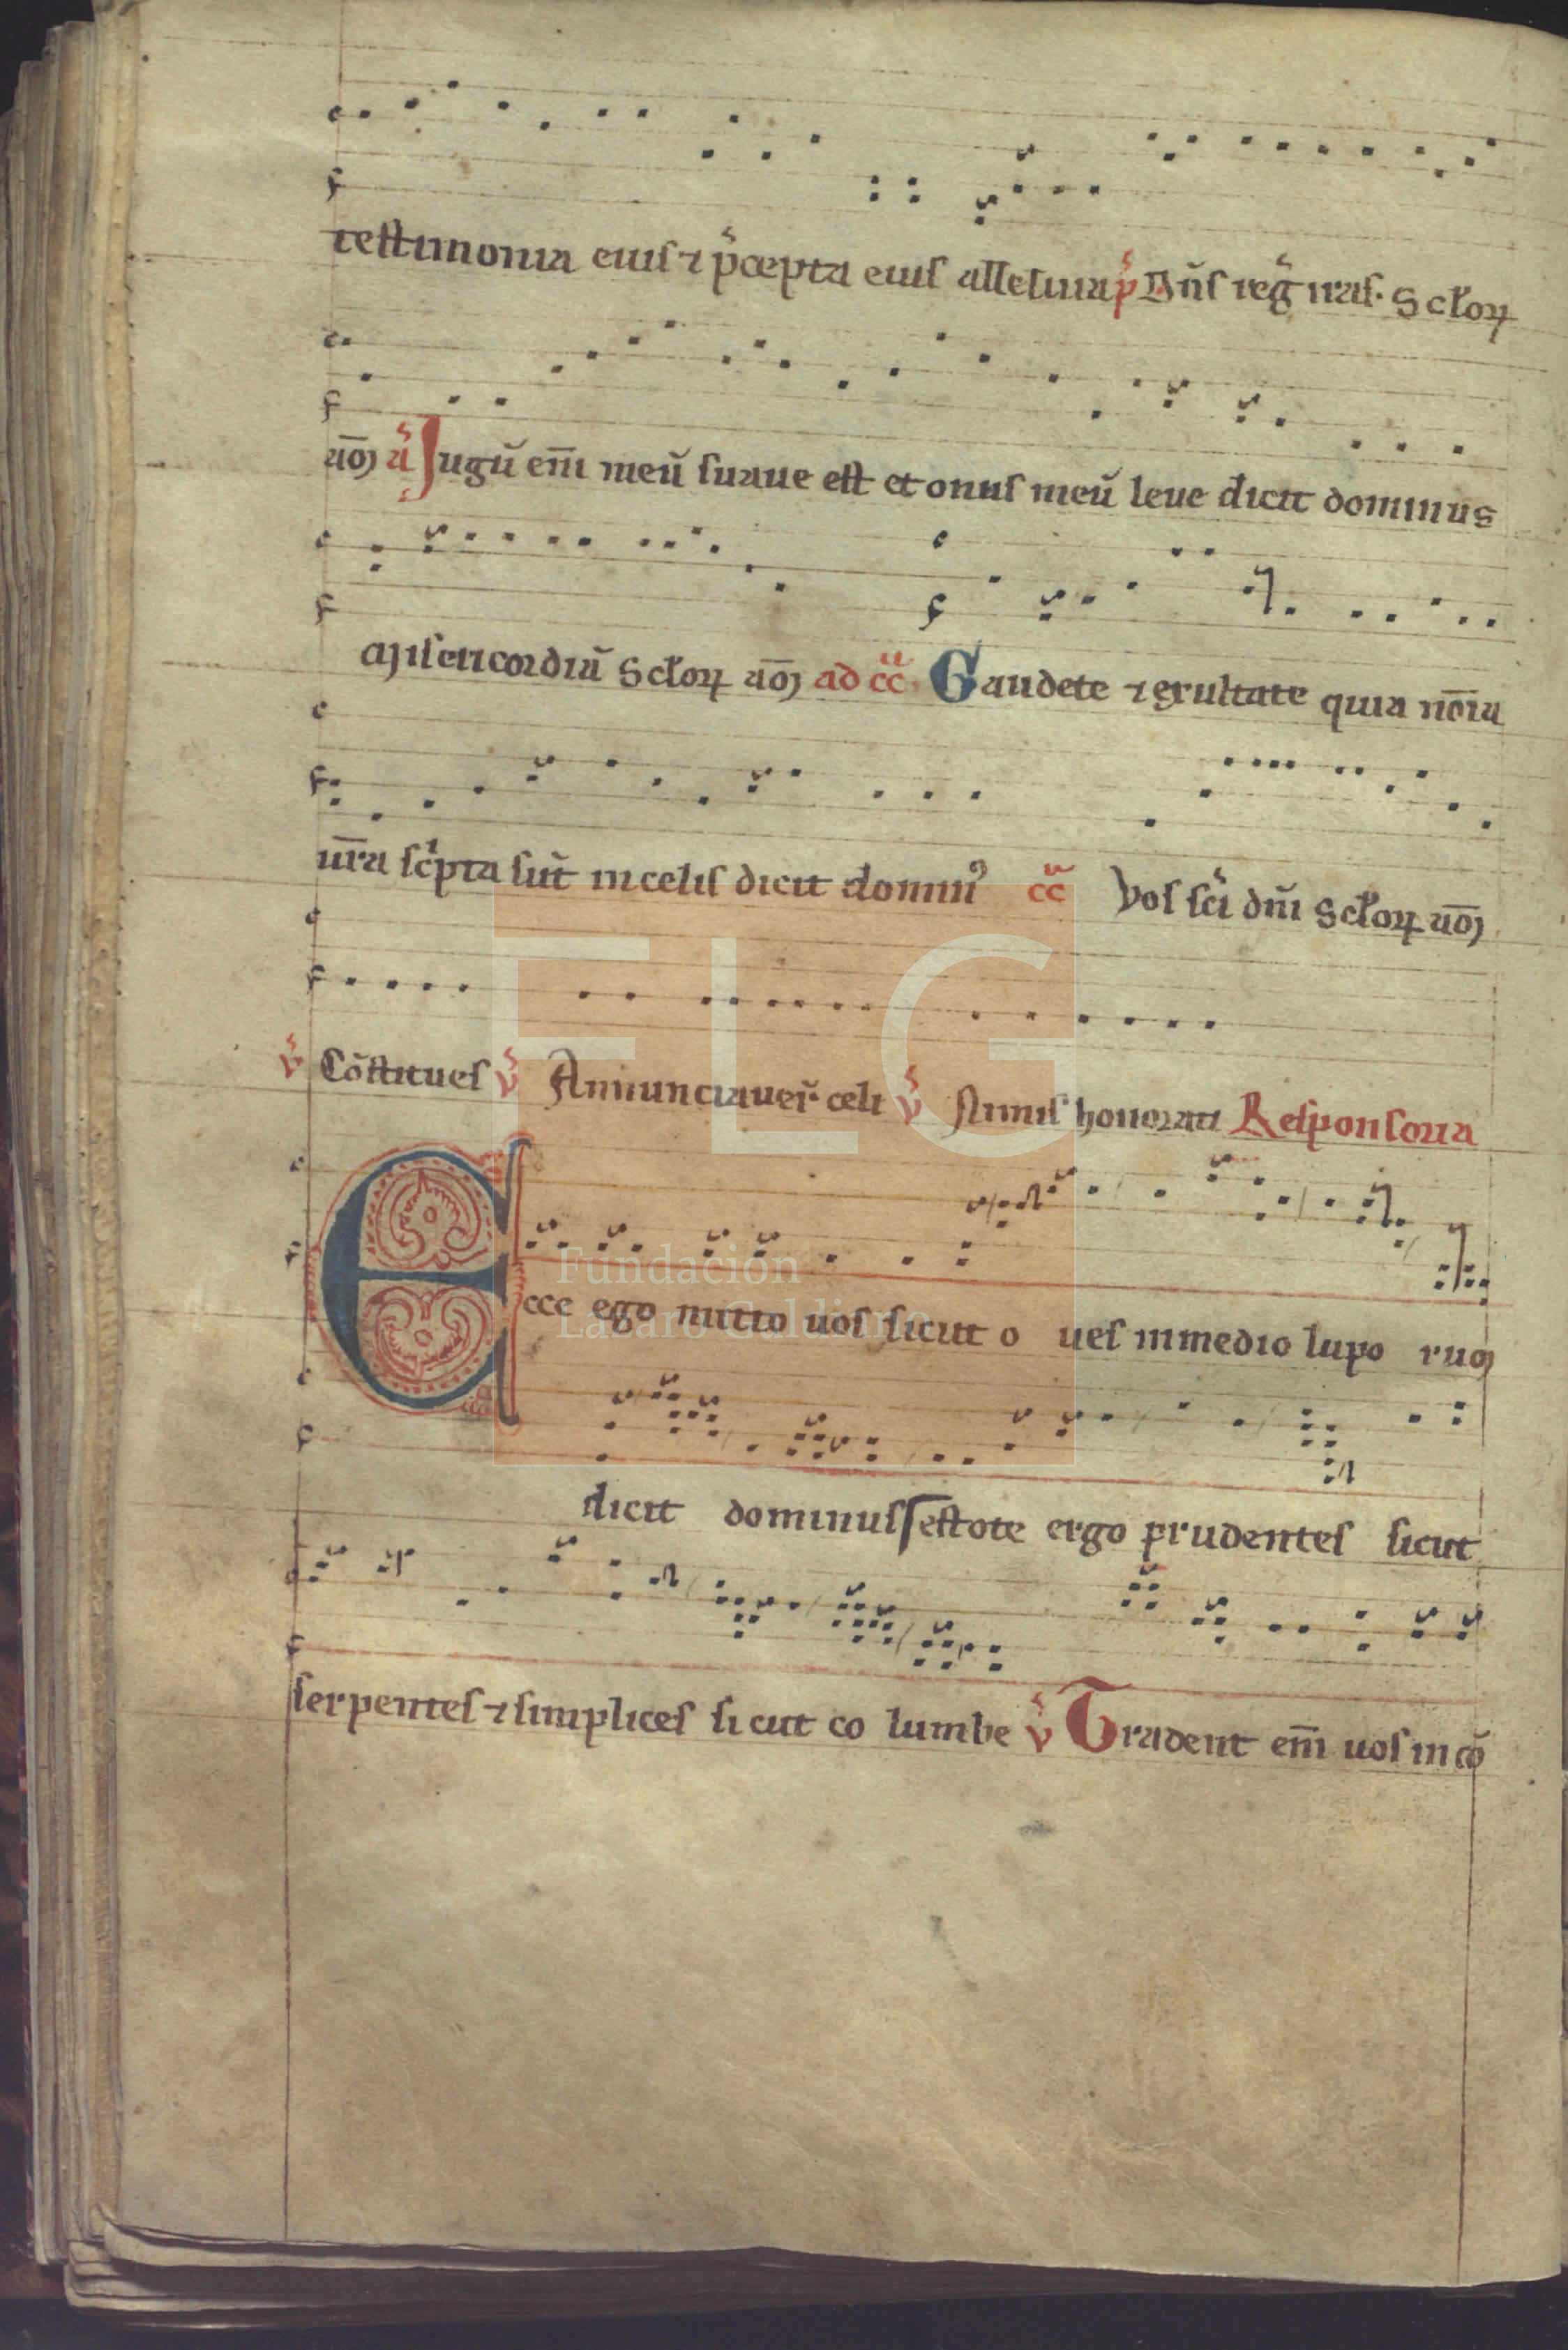 testimonia eius ⁊ p̃cepta eius alleluia p̃ Dn̄s reg̃ uit. Sc̄loꝝ
am̄ a᷒ Jugū em̄ meū suaue est et onus meū leue dicit dominus
Misericordiū Sc̄loꝝ am̄ ad cc̄ Gaudete ⁊ exultate quia nōia
ur̄a sc̄pta sūt in celis dicit domin᷒ cc̄ Vos sc̄i dn̄i Sc̄loꝝ am̄
v̓ Cōstitues v̓ Annunciauer̄ celi v̓ Nimis honorati Responsoria
Ecce ego mitto uos sicut o ues in medio lupo rum
dicit dominus estote ergo prudentes sicut
serpentes ⁊ simplices si cut co lumbe v̓ Tradent em̄ uos in cō
FLG
Fundación
Lázaro Galdiano